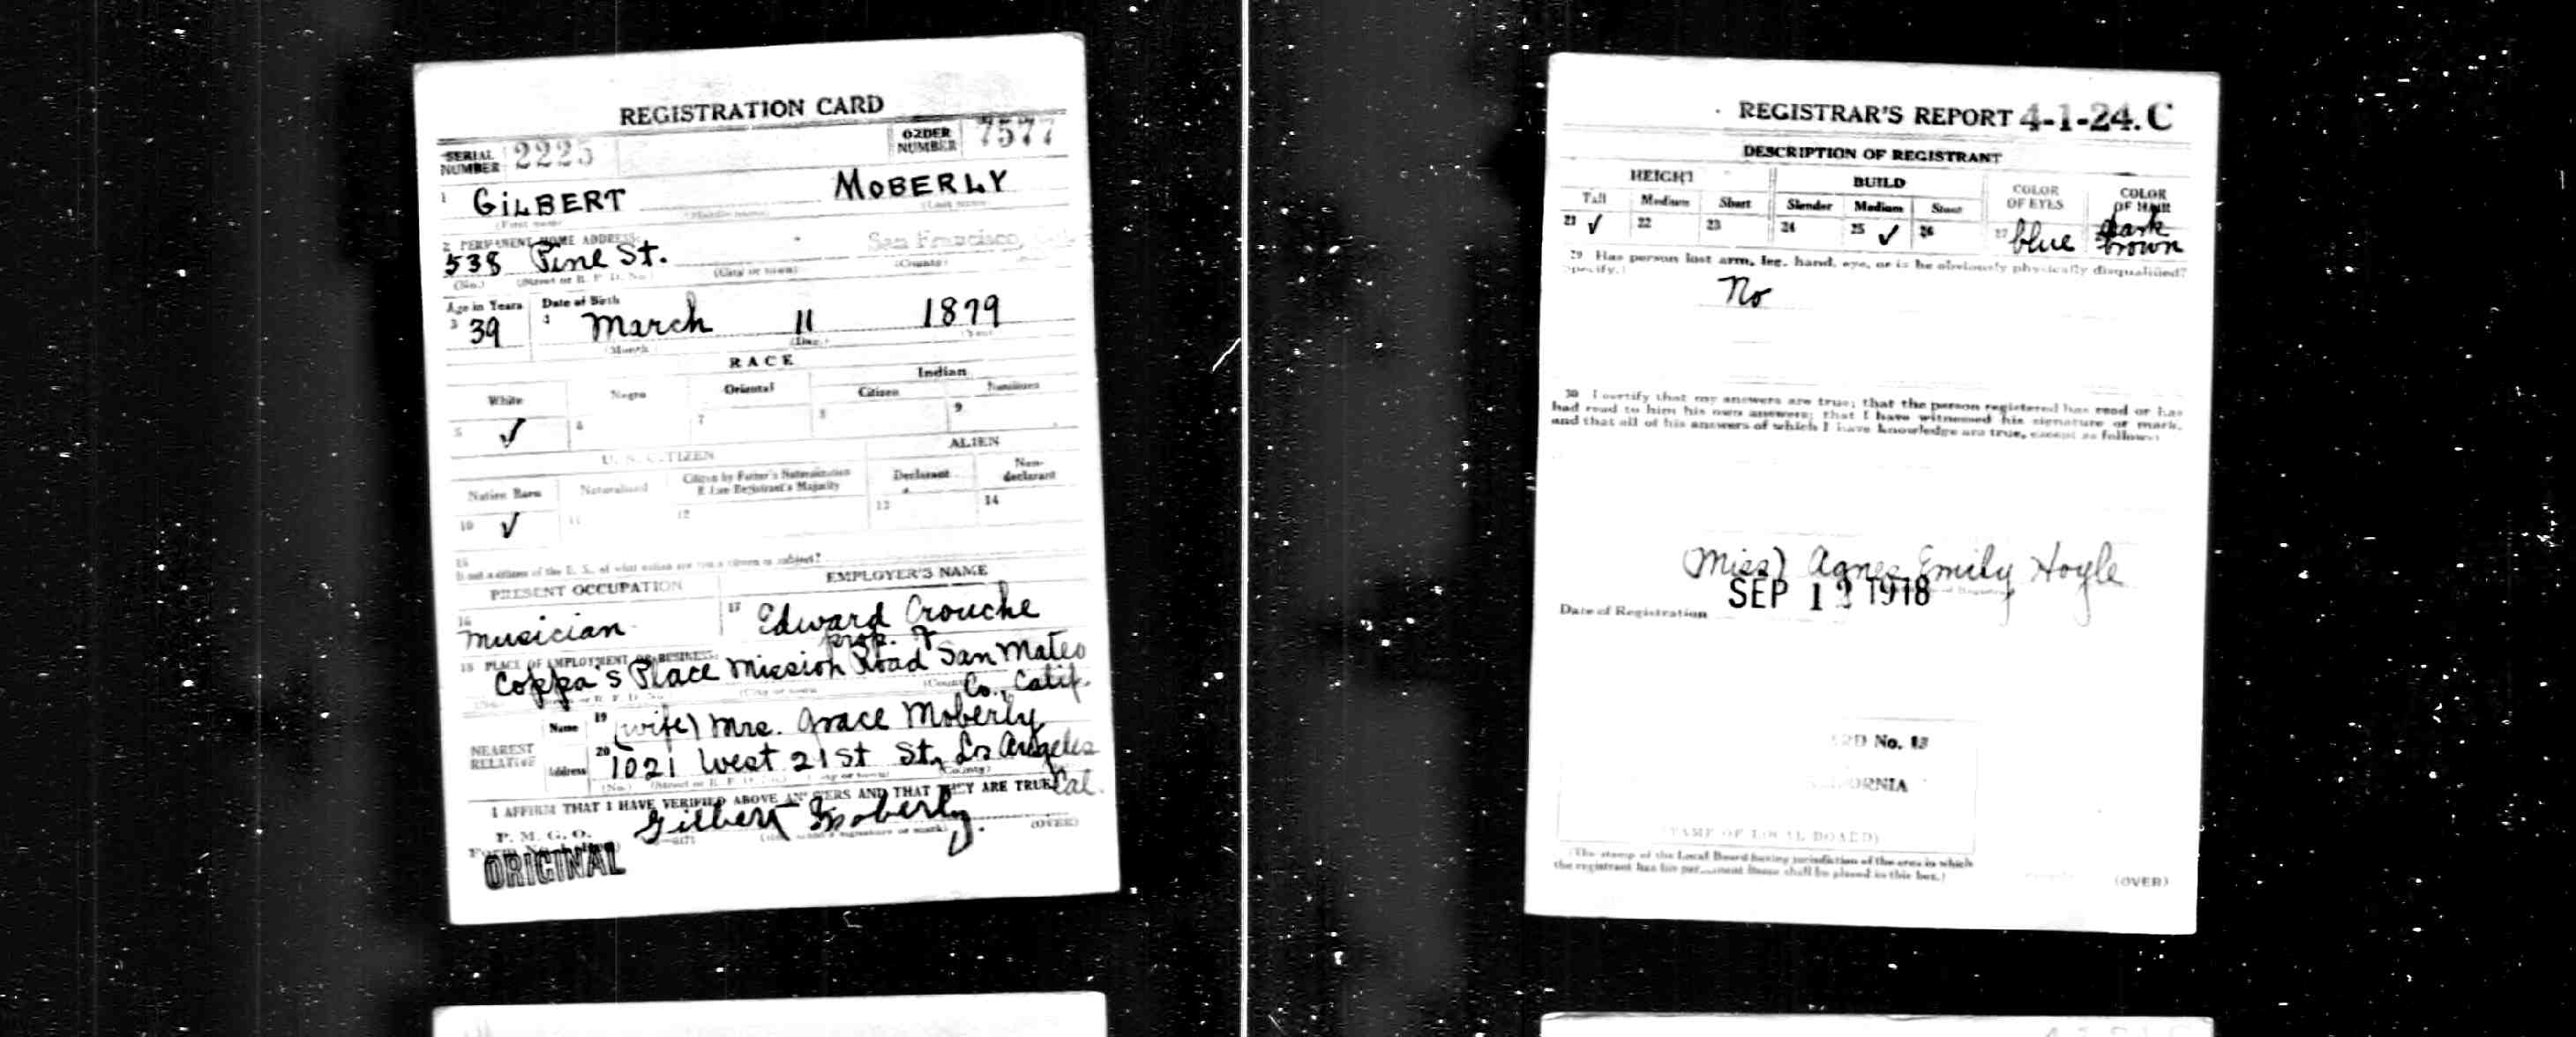 REGISTRATION CARD
SERIAL NUMBER 2225 ORDER NUMBER 7577
1 GILBERT MOBERLY
(First name) (Middle name) (Last name)
2 PERMANENT HOME ADDRESS:
538 Pine St. San Francisco,
(No.) (Street or R. F. D. No.) (City or town) (County)
Age in Years Date of Birth
3 39 4 March 11 1879
(Month) (Day) (Year)
RACE
White Negro Oriental Indian
Citizen Noncitizen
5 ✓ 6 7 8 9
U. S. CITIZEN ALIEN
Native Born Naturalized Citizen by Father's Naturalization Before Registrant's Majority Declarant Non-declarant
10 ✓ 11 12 13 14
15
If not a citizen of the U. S., of what nation are you a citizen or subject?
PRESENT OCCUPATION EMPLOYER'S NAME
16 musician 17 Edward Crouche
prop. of
18 PLACE OF EMPLOYMENT OR BUSINESS:
Coppa's Place Mission Road San Mateo
Co., Calif.
NEAREST RELATIVE
Name 19 (wife) Mrs. Grace Moberly
Address 20 1021 West 21st St., Los Angeles
Cal.
I AFFIRM THAT I HAVE VERIFIED ABOVE ANSWERS AND THAT THEY ARE TRUE
P. M. G. O. Gilbert Moberly.
(OVER)
ORIGINAL
REGISTRAR'S REPORT 4-1-24. C
DESCRIPTION OF REGISTRANT
HEIGHT BUILD COLOR OF EYES COLOR OF HAIR
Tall Medium Short Slender Medium Stout
21 ✓ 22 23 24 25 ✓ 26 27 blue dark brown
29 Has person lost arm, leg, hand, eye, or is he obviously physically disqualified?
(Specify.)
No
30 I certify that my answers are true; that the person registered has read or has
had read to him his own answers; that I have witnessed his signature or mark,
and that all of his answers of which I have knowledge are true, except as follows:
(Miss) Agnes Emily Hoyle
Date of Registration SEP 12 1918
No. 13
CALIFORNIA
(STAMP OF LOCAL BOARD)
(The stamp of the Local Board having jurisdiction of the area in which
the registrant has his permanent home shall be placed in this box.)
(OVER)